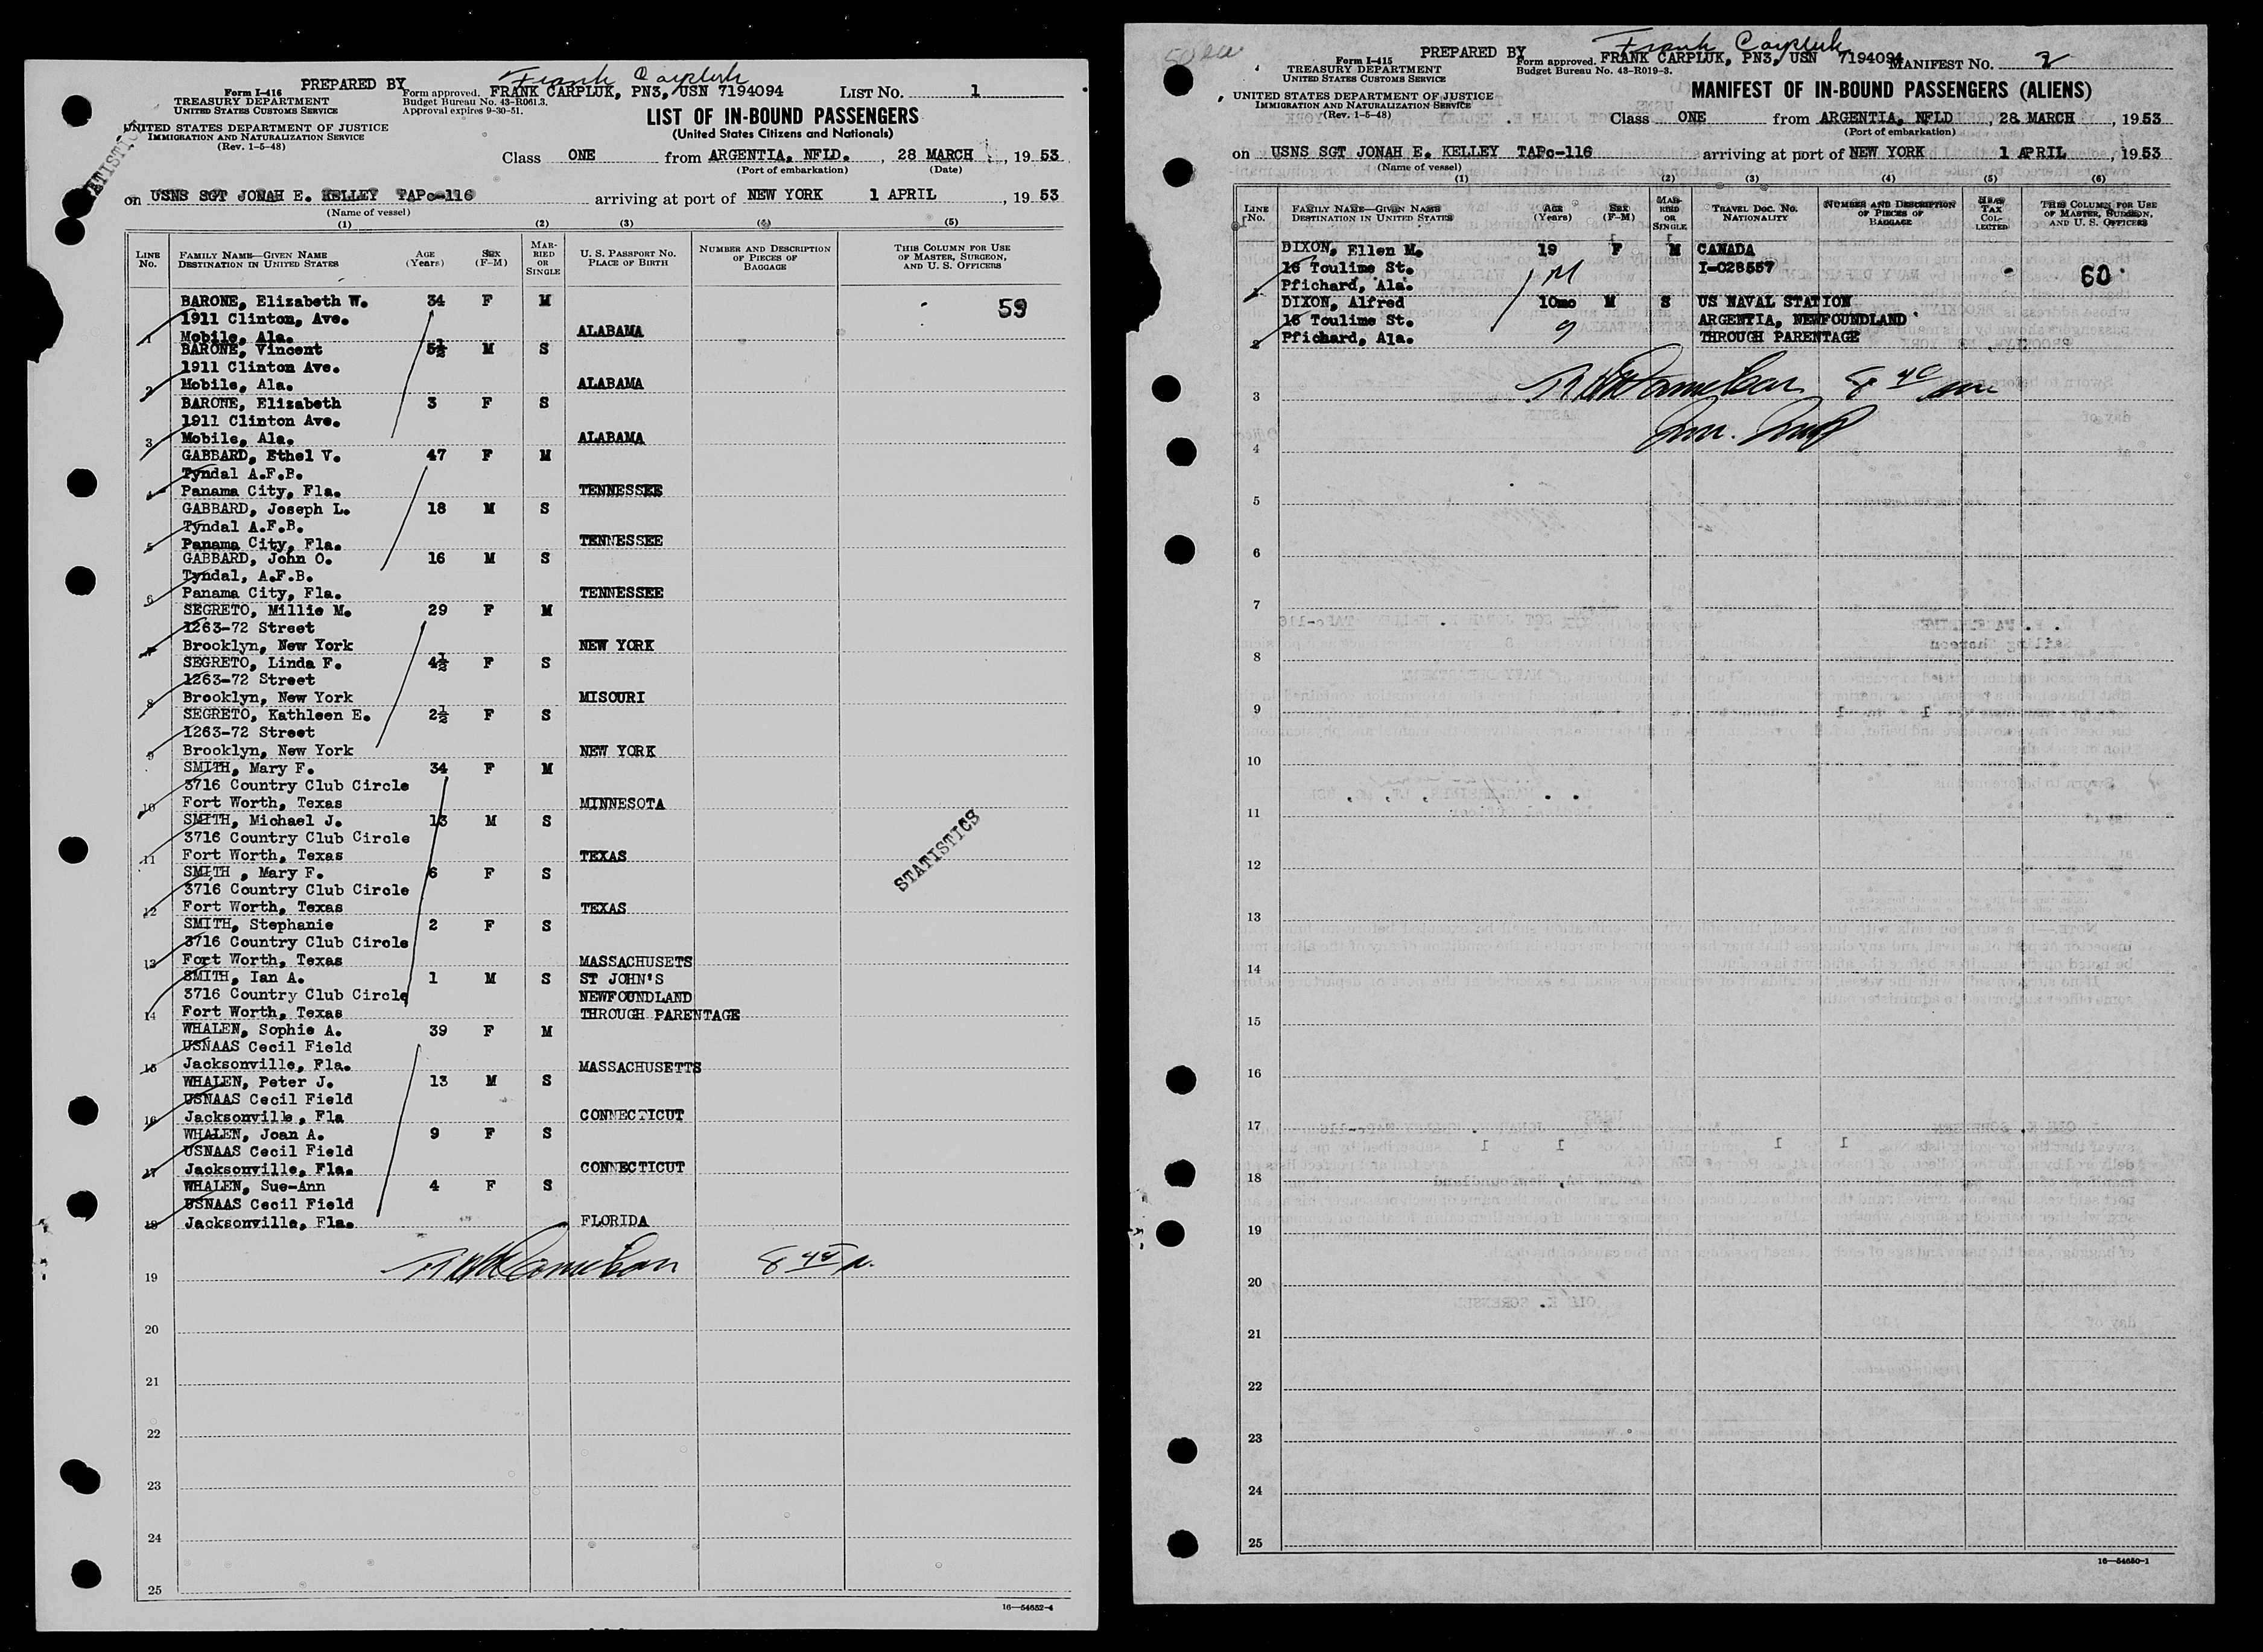 PREPARED BY
Frank Carpluk
Form I-416
TREASURY DEPARTMENT
UNITED STATES CUSTOMS SERVICE
Form approved.
Budget Bureau No. 43-R061.3.
Approval expires 9-30-51.
FRANK CARPLUK, PN3, USN 7194094
LIST No. 1
UNITED STATES DEPARTMENT OF JUSTICE
IMMIGRATION AND NATURALIZATION SERVICE
(Rev. 1-5-48)
LIST OF IN-BOUND PASSENGERS
(United States Citizens and Nationals)
Class ONE from ARGENTIA, NFLD. , 28 MARCH , 19 53
(Port of embarkation) (Date)
on USNS SGT JONAH E. KELLEY TAPc-116 arriving at port of NEW YORK 1 APRIL , 19 53
(Name of vessel)
(1) (2) (3) (4) (5)
LINE No.
FAMILY NAME—GIVEN NAME
DESTINATION IN UNITED STATES
AGE (Years)
SEX (F-M)
MARRIED OR SINGLE
U. S. PASSPORT No.
PLACE OF BIRTH
NUMBER AND DESCRIPTION OF PIECES OF BAGGAGE
THIS COLUMN FOR USE OF MASTER, SURGEON, AND U. S. OFFICERS
BARONE, Elizabeth W. 34 F M 59
1911 Clinton, Ave.
1 Mobile, Ala. ALABAMA
BARONE, Vincent 5½ M S
1911 Clinton Ave.
2 Mobile, Ala. ALABAMA
BARONE, Elizabeth 3 F S
1911 Clinton Ave.
3 Mobile, Ala. ALABAMA
GABBARD, Ethel V. 47 F M
Tyndal A.F.B.
4 Panama City, Fla. TENNESSEE
GABBARD, Joseph L. 18 M S
Tyndal A.F.B.
5 Panama City, Fla. TENNESSEE
GABBARD, John O. 16 M S
Tyndal, A.F.B.
6 Panama City, Fla. TENNESSEE
SEGRETO, Millie M. 29 F M
1263-72 Street
7 Brooklyn, New York NEW YORK
SEGRETO, Linda F. 4½ F S
1263-72 Street
8 Brooklyn, New York MISOURI
SEGRETO, Kathleen E. 2½ F S
1263-72 Street
9 Brooklyn, New York NEW YORK
SMITH, Mary F. 34 F M
3716 Country Club Circle
10 Fort Worth, Texas MINNESOTA
SMITH, Michael J. 13 M S
3716 Country Club Circle
11 Fort Worth, Texas TEXAS
SMITH , Mary F. 6 F S
3716 Country Club Circle
12 Fort Worth, Texas TEXAS
SMITH, Stephanie 2 F S
3716 Country Club Circle
13 Fort Worth, Texas MASSACHUSETS
SMITH, Ian A. 1 M S ST JOHN'S
3716 Country Club Circle NEWFOUNDLAND
14 Fort Worth, Texas THROUGH PARENTAGE
WHALEN, Sophie A. 39 F M
USNAAS Cecil Field
15 Jacksonville, Fla. MASSACHUSETTS
WHALEN, Peter J. 13 M S
USNAAS Cecil Field
16 Jacksonville, Fla CONNECTICUT
WHALEN, Joan A. 9 F S
USNAAS Cecil Field
17 Jacksonville, Fla. CONNECTICUT
WHALEN, Sue-Ann 4 F S
USNAAS Cecil Field
18 Jacksonville, Fla. FLORIDA
STATISTICS
19
20
21
22
23
24
25
16—54652-4
PREPARED BY
Frank Carpluk
Form I-415
TREASURY DEPARTMENT
UNITED STATES CUSTOMS SERVICE
Form approved.
Budget Bureau No. 43-R019-3.
FRANK CARPLUK, PN3, USN 7194094
MANIFEST No. 2
UNITED STATES DEPARTMENT OF JUSTICE
IMMIGRATION AND NATURALIZATION SERVICE
(Rev. 1-5-48)
MANIFEST OF IN-BOUND PASSENGERS (ALIENS)
Class ONE from ARGENTIA, NFLD , 28 MARCH , 1953
(Port of embarkation)
on USNS SGT JONAH E. KELLEY TAPc-116 arriving at port of NEW YORK 1 APRIL , 1953
(Name of vessel)
(1) (2) (3) (4) (5) (6)
LINE No.
FAMILY NAME—GIVEN NAME
DESTINATION IN UNITED STATES
AGE (Years)
SEX (F-M)
MARRIED OR SINGLE
TRAVEL DOC. No.
NATIONALITY
NUMBER AND DESCRIPTION OF PIECES OF BAGGAGE
HEAD TAX COLLECTED
THIS COLUMN FOR USE OF MASTER, SURGEON, AND U. S. OFFICERS
DIXON, Ellen M. 19 F M CANADA
16 Toulime St. M I-028557 60
1 Pfichard, Ala.
DIXON, Alfred 10mo M S US NAVAL STATION
16 Toulime St. ARGENTIA, NEWFOUNDLAND
2 Pfichard, Ala. THROUGH PARENTAGE
3
4
5
6
7
8
9
10
11
12
13
14
15
16
17
18
19
20
21
22
23
24
25
16—54650-1